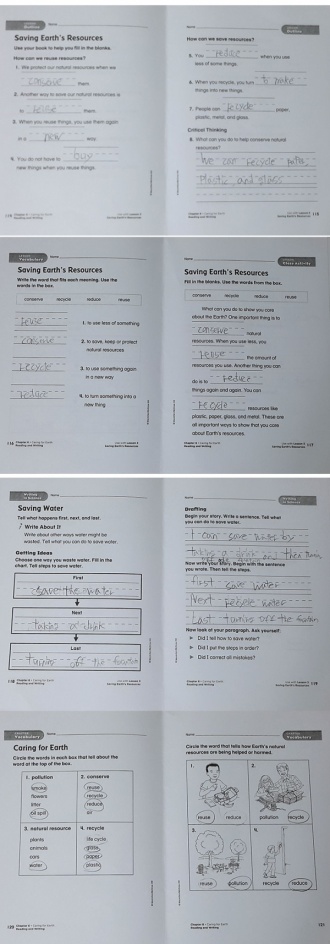 Name
Saving Earth's Resources
Use your book to help you fill in the blanks.
How can we reuse resources?
1. We protect our natural resources when we
conserve them.
2. Another way to save our natural resources is
to reuse them.
3. When you reuse things, you use them again
in a new way.
4. You do not have to buy
new things when you reuse things.
Name
How can we save resources?
5. You reduce when you use
less of some things.
6. When you recycle, you turn to make
things into new things.
7. People can recycle paper,
plastic, metal, and glass.
Critical Thinking
8. What can you do to help conserve natural
resources?
We can recycle
Plastic and glass
Name
Saving Earth's Resources
Write the word that fits each meaning. Use the
words in the box.
conserve recycle reduce reuse
reuse 1. to use less of something
conserve 2. to save, keep or protect
natural resources
recycle 3. to use something again
in a new way
reduce 4. to turn something into a
new thing
116 Chapter 6 • Caring for Earth
Reading and Writing
Name
Saving Earth's Resources
Fill in the blanks. Use the words from the box.
conserve recycle reduce reuse
What can you do to show you care
about the Earth? One important thing is to
conserve natural
resources. When you use less, you
reuse the amount of
resources you use. Another thing you can
do is to reduce
things again and again. You can
recycle resources like
plastic, paper, glass, and metal. These are
all important ways to show that you care
about Earth's resources.
117
Name
Saving Water
Tell what happens first, next, and last.
Write About It
Write about other ways water might be
wasted. Tell what you can do to save water.
Getting Ideas
Choose one way you waste water. Fill in the
chart. Tell steps to save water.
First
save the water
Next
taking a drink
Last
turning off the
118 Chapter 6 • Caring for Earth
Reading and Writing
Name
Drafting
Begin your story. Write a sentence. Tell what
you can do to save water.
I can save water by
taking a drink and then
Now write your story. Begin with the sentence
you wrote. Then tell the steps.
first save water
Next recycle water
Last turning off the
Now look at your paragraph. Ask yourself:
Did I tell how to save water?
Did I put the steps in order?
Did I correct all mistakes?
119
Name
Caring for Earth
Circle the words in each box that tell about the
word at the top of the box.
1. pollution
smoke
flowers
litter
oil spill
2. conserve
reuse
recycle
reduce
air
3. natural resource
plants
animals
cars
water
4. recycle
life cycle
glass
paper
plastic
120 Chapter 6 • Caring for Earth
Reading and Writing
Name
Circle the word that tells how Earth's natural
resources are being helped or harmed.
1.
reuse reduce
2.
pollution recycle
3.
reuse pollution
4.
recycle reduce
Chapter 6 • Caring for Earth
Reading and Writing
121